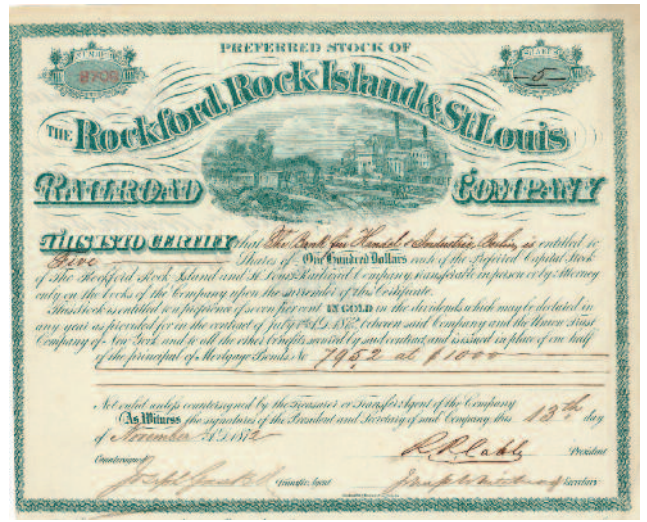 PREFERRED STOCK OF
5
THE Rockford, Rock Island & St. Louis
RAILROAD COMPANY
THIS IS TO CERTIFY that The Bank für Handel & Industrie, Berlin, is entitled to
Five Shares of One Hundred Dollars each of the Preferred Capital Stock
of The Rockford Rock Island and St. Louis Railroad Company, transferable in person or by Attorney
only on the books of the Company upon the surrender of this Certificate.
This Stock is entitled to a preference of seven per cent IN GOLD in the dividends which may be declared in
any year as provided for in the contract of July 1872, between said Company and the Union Trust
Company of New York and to all the other benefits secured by said contract and is issued in place of one half
of the principal of Mortgage Bonds No. 7952 at $1000
Not valid unless countersigned by the Treasurer or Transfer Agent of the Company
As Witness the signatures of the President and Secretary of said Company this 13th day
of November A.D. 1872
R. R. Cable President
Countersigned
Joseph Transfer Agent Secretary